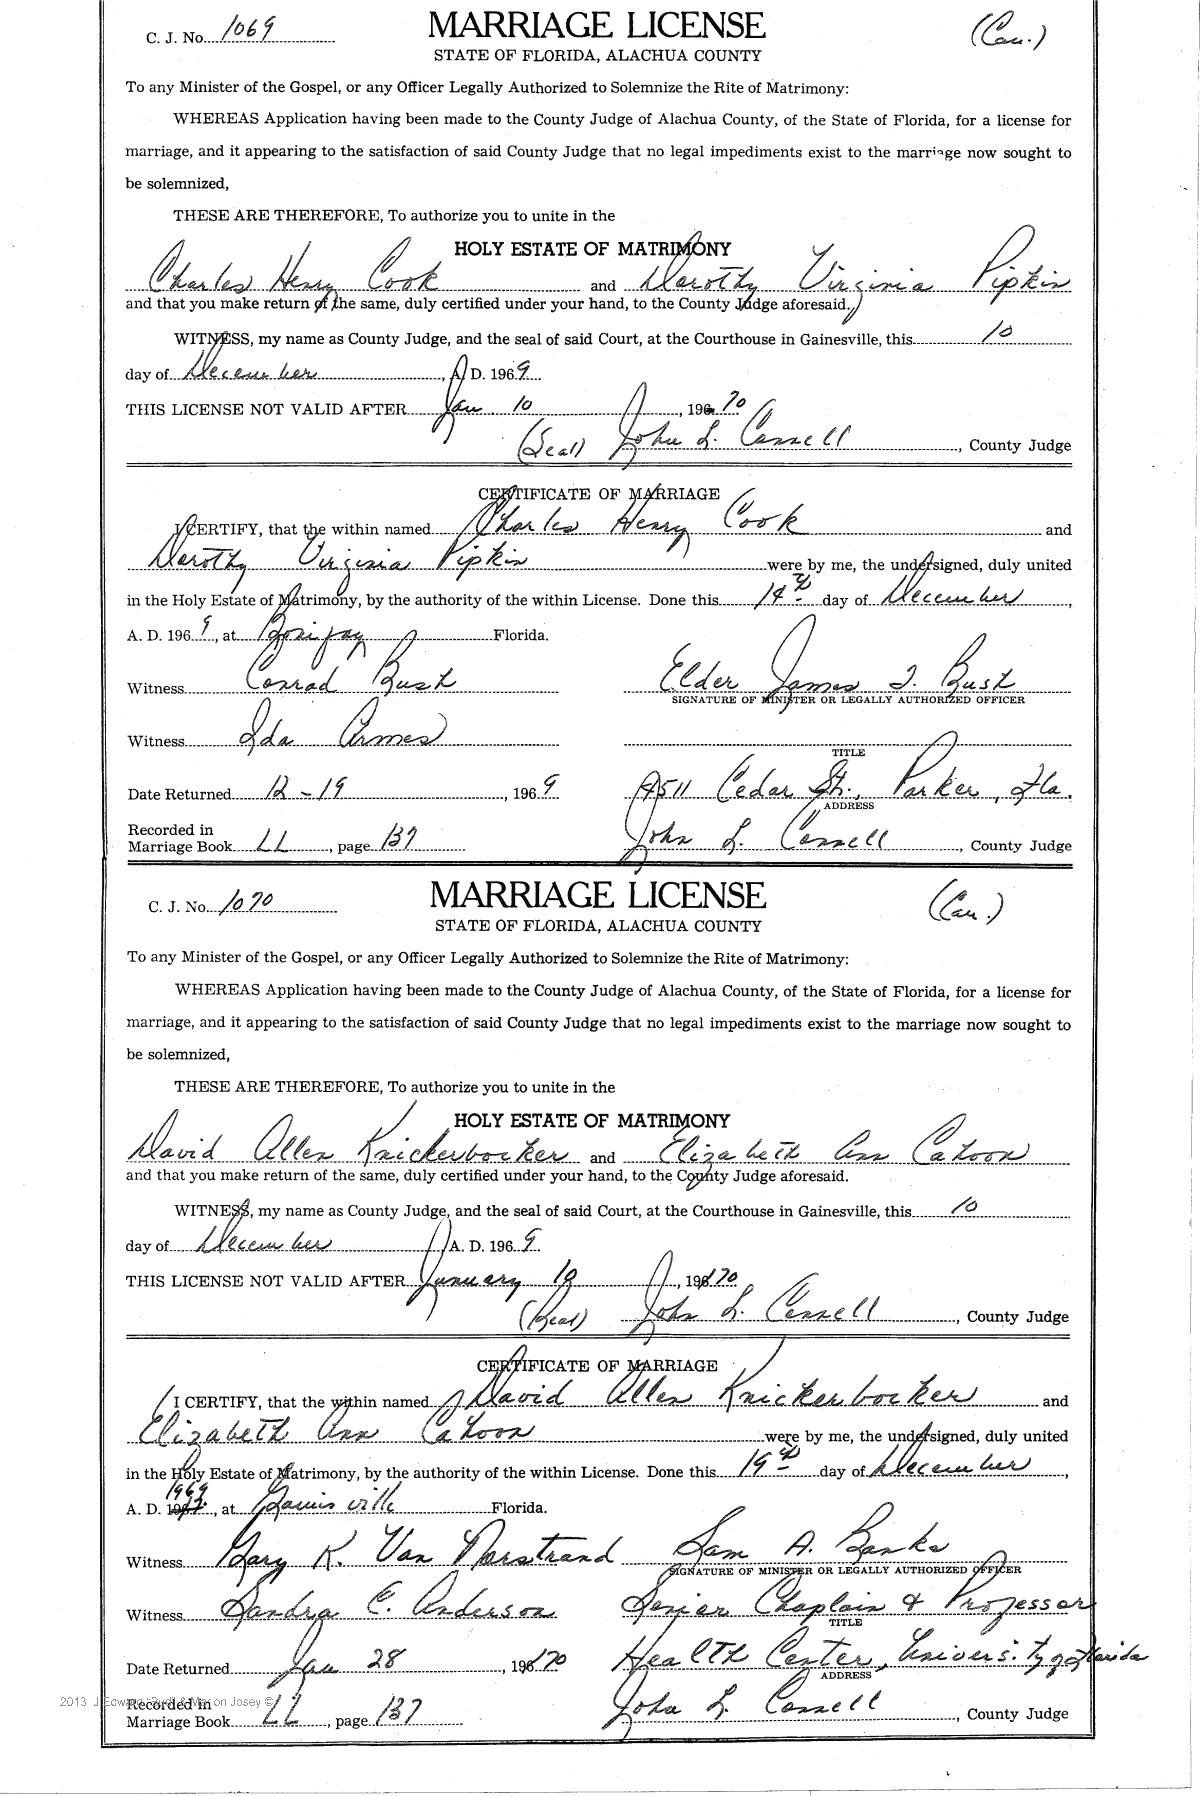 C. J. No. 1069
MARRIAGE LICENSE
(Cau.)
STATE OF FLORIDA, ALACHUA COUNTY
To any Minister of the Gospel, or any Officer Legally Authorized to Solemnize the Rite of Matrimony:
WHEREAS Application having been made to the County Judge of Alachua County, of the State of Florida, for a license for
marriage, and it appearing to the satisfaction of said County Judge that no legal impediments exist to the marriage now sought to
be solemnized,
THESE ARE THEREFORE, To authorize you to unite in the
HOLY ESTATE OF MATRIMONY
Charles Henry Cook and Dorothy Virginia Pipkin
and that you make return of the same, duly certified under your hand, to the County Judge aforesaid.
WITNESS, my name as County Judge, and the seal of said Court, at the Courthouse in Gainesville, this 10
day of December, A. D. 1969
THIS LICENSE NOT VALID AFTER Jan 10, 1970
(Seal) John L. Connell, County Judge
CERTIFICATE OF MARRIAGE
I CERTIFY, that the within named Charles Henry Cook and
Dorothy Virginia Pipkin were by me, the undersigned, duly united
in the Holy Estate of Matrimony, by the authority of the within License. Done this 14th day of December,
A. D. 1969, at Bonifay Florida.
Witness Conrad Bush Elder James T. Bush
SIGNATURE OF MINISTER OR LEGALLY AUTHORIZED OFFICER
Witness Ida Armes
TITLE
Date Returned 12-19, 1969 4511 Cedar St., Parker, Fla.
ADDRESS
Recorded in
Marriage Book LL, page 137 John L. Connell, County Judge
C. J. No. 1070
MARRIAGE LICENSE
(Cau.)
STATE OF FLORIDA, ALACHUA COUNTY
To any Minister of the Gospel, or any Officer Legally Authorized to Solemnize the Rite of Matrimony:
WHEREAS Application having been made to the County Judge of Alachua County, of the State of Florida, for a license for
marriage, and it appearing to the satisfaction of said County Judge that no legal impediments exist to the marriage now sought to
be solemnized,
THESE ARE THEREFORE, To authorize you to unite in the
HOLY ESTATE OF MATRIMONY
David Allen Knickerbocker and Elizabeth Ann Cahoon
and that you make return of the same, duly certified under your hand, to the County Judge aforesaid.
WITNESS, my name as County Judge, and the seal of said Court, at the Courthouse in Gainesville, this 10
day of December A. D. 1969
THIS LICENSE NOT VALID AFTER January 10, 1970
(Seal) John L. Connell, County Judge
CERTIFICATE OF MARRIAGE
I CERTIFY, that the within named David Allen Knickerbocker and
Elizabeth Ann Cahoon were by me, the undersigned, duly united
in the Holy Estate of Matrimony, by the authority of the within License. Done this 19th day of December,
A. D. 1969, at Gainesville Florida.
Witness Gary K. Van Norstrand Sam A. Banks
SIGNATURE OF MINISTER OR LEGALLY AUTHORIZED OFFICER
Witness Sandra E. Anderson Senior Chaplain & Professor
TITLE
Date Returned Jan 28, 1970 Health Center, University of Florida
ADDRESS
Recorded in
Marriage Book LL, page 137 John L. Connell, County Judge